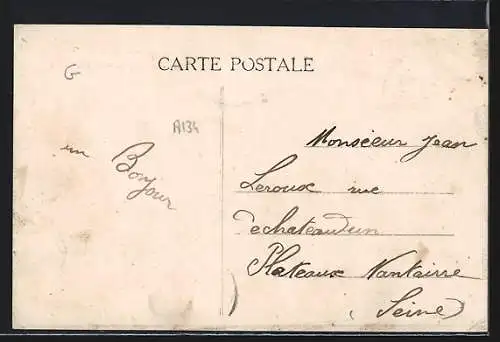 CARTE POSTALE
G
A134
un Bonjour
Monsieur Jean
Leroux rue
dechateaudun
Plateaux Nantairre
Seine